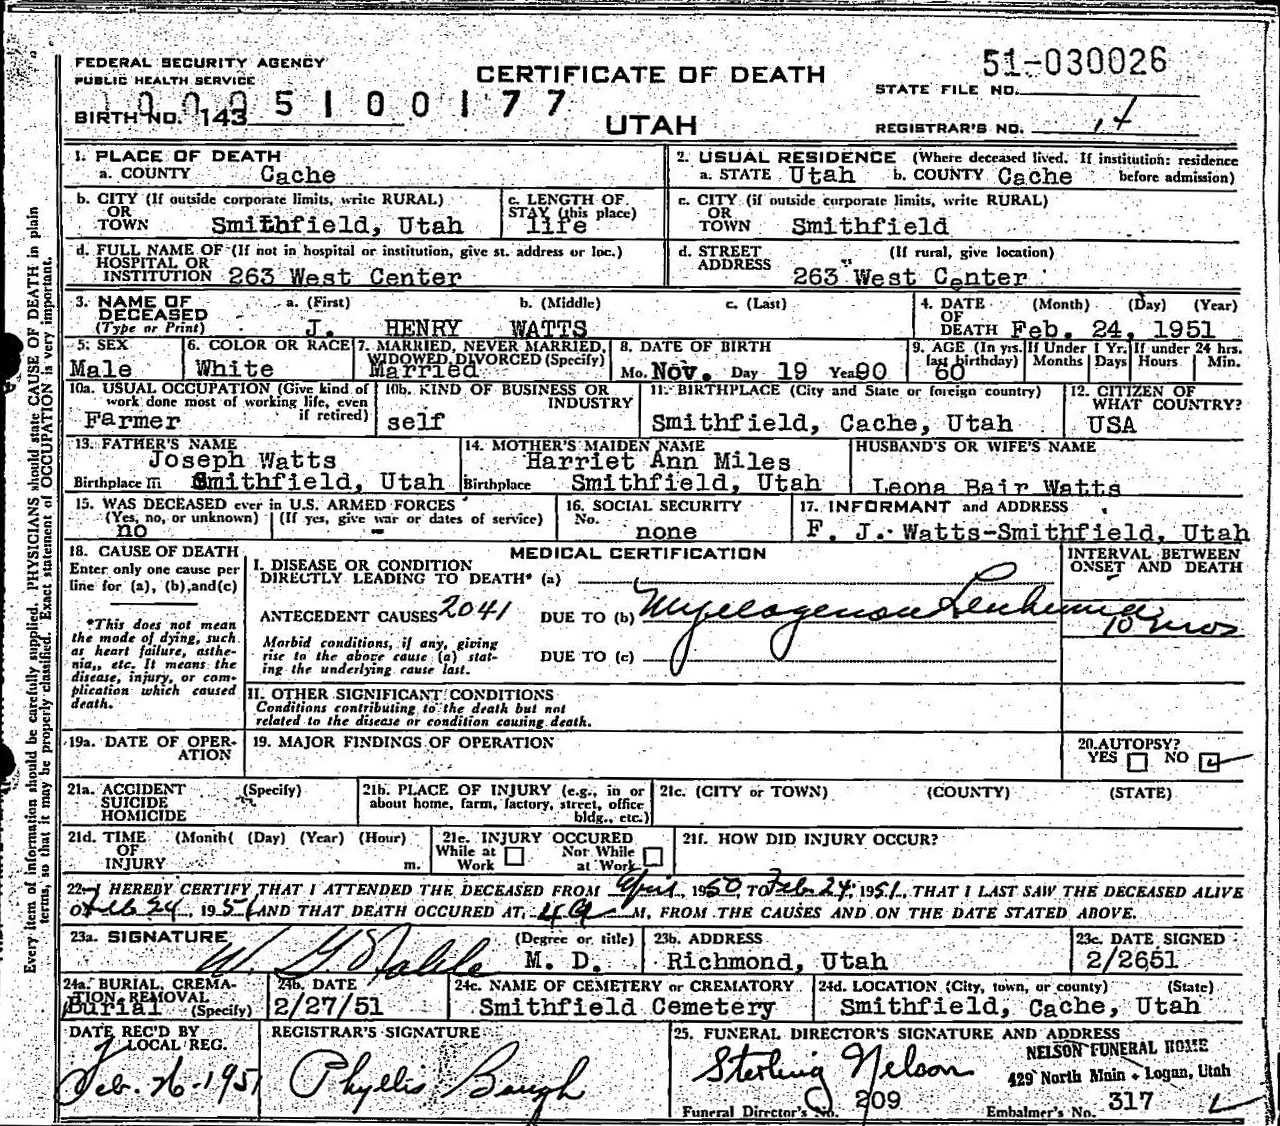 FEDERAL SECURITY AGENCY
PUBLIC HEALTH SERVICE
CERTIFICATE OF DEATH
51-030026
STATE FILE NO.
BIRTH NO. 143 5100177
UTAH
REGISTRAR'S NO. 17
1. PLACE OF DEATH
a. COUNTY Cache
2. USUAL RESIDENCE (Where deceased lived. If institution: residence before admission)
a. STATE Utah b. COUNTY Cache
b. CITY (If outside corporate limits, write RURAL)
OR
TOWN Smithfield, Utah
c. LENGTH OF
STAY (this place)
life
c. CITY (if outside corporate limits, write RURAL)
OR
TOWN Smithfield
d. FULL NAME OF (If not in hospital or institution, give st. address or loc.)
HOSPITAL OR
INSTITUTION 263 West Center
d. STREET (If rural, give location)
ADDRESS 263 West Center
3. NAME OF DECEASED
(Type or Print)
a. (First) b. (Middle) c. (Last)
J. HENRY WATTS
4. DATE OF DEATH (Month) (Day) (Year)
Feb. 24, 1951
5. SEX
Male
6. COLOR OR RACE
White
7. MARRIED, NEVER MARRIED,
WIDOWED DIVORCED (Specify)
Married
8. DATE OF BIRTH
Mo. Nov. Day 19 Year 90
9. AGE (In yrs. last birthday)
60
If Under 1 Yr. Months Days
If under 24 hrs. Hours Min.
10a. USUAL OCCUPATION (Give kind of
work done most of working life, even
if retired)
Farmer
10b. KIND OF BUSINESS OR
INDUSTRY
self
11. BIRTHPLACE (City and State or foreign country)
Smithfield, Cache, Utah
12. CITIZEN OF
WHAT COUNTRY?
USA
13. FATHER'S NAME
Joseph Watts
Birthplace Smithfield, Utah
14. MOTHER'S MAIDEN NAME
Harriet Ann Miles
Birthplace Smithfield, Utah
HUSBAND'S OR WIFE'S NAME
Leona Bair Watts
15. WAS DECEASED ever in U.S. ARMED FORCES
(Yes, no, or unknown) (If yes, give war or dates of service)
no -
16. SOCIAL SECURITY
No. none
17. INFORMANT and ADDRESS
F. J. Watts-Smithfield, Utah
18. CAUSE OF DEATH
Enter only one cause per
line for (a), (b), and (c)
*This does not mean
the mode of dying, such
as heart failure, asthe-
nia, etc. It means the
disease, injury, or com-
plication which caused
death.
MEDICAL CERTIFICATION
INTERVAL BETWEEN
ONSET AND DEATH
I. DISEASE OR CONDITION
DIRECTLY LEADING TO DEATH* (a)
ANTECEDENT CAUSES 2041 DUE TO (b) Myelogenous Leukemia 10 mos
Morbid conditions, if any, giving
rise to the above cause (a) stat-
ing the underlying cause last.
DUE TO (c)
II. OTHER SIGNIFICANT CONDITIONS
Conditions contributing to the death but not
related to the disease or condition causing death.
19a. DATE OF OPER-
ATION
19. MAJOR FINDINGS OF OPERATION
20. AUTOPSY?
YES NO
21a. ACCIDENT (Specify)
SUICIDE
HOMICIDE
21b. PLACE OF INJURY (e.g., in or
about home, farm, factory, street, office
bldg., etc.)
21c. (CITY or TOWN) (COUNTY) (STATE)
21d. TIME (Month) (Day) (Year) (Hour)
OF
INJURY m.
21e. INJURY OCCURED
While at Work Not While at Work
21f. HOW DID INJURY OCCUR?
22. I HEREBY CERTIFY THAT I ATTENDED THE DECEASED FROM April, 1950 TO Feb 24, 1951, THAT I LAST SAW THE DECEASED ALIVE
ON Feb 24, 1951 AND THAT DEATH OCCURED AT 4 a M, FROM THE CAUSES AND ON THE DATE STATED ABOVE.
23a. SIGNATURE (Degree or title)
W. G. M. D.
23b. ADDRESS
Richmond, Utah
23c. DATE SIGNED
2/2651
24a. BURIAL, CREMA-
TION, REMOVAL
(Specify)
Burial
24b. DATE
2/27/51
24c. NAME OF CEMETERY or CREMATORY
Smithfield Cemetery
24d. LOCATION (City, town, or county) (State)
Smithfield, Cache, Utah
DATE REC'D BY
LOCAL REG.
Feb. 26-1951
REGISTRAR'S SIGNATURE
Phyllis Baugh
25. FUNERAL DIRECTOR'S SIGNATURE AND ADDRESS
Sterling Nelson
NELSON FUNERAL HOME
429 North Main - Logan, Utah
Funeral Director's No. 209 Embalmer's No. 317
Every item of information should be carefully supplied. PHYSICIANS should state CAUSE OF DEATH in plain
terms, so that it may be properly classified. Exact statement of OCCUPATION is very important.